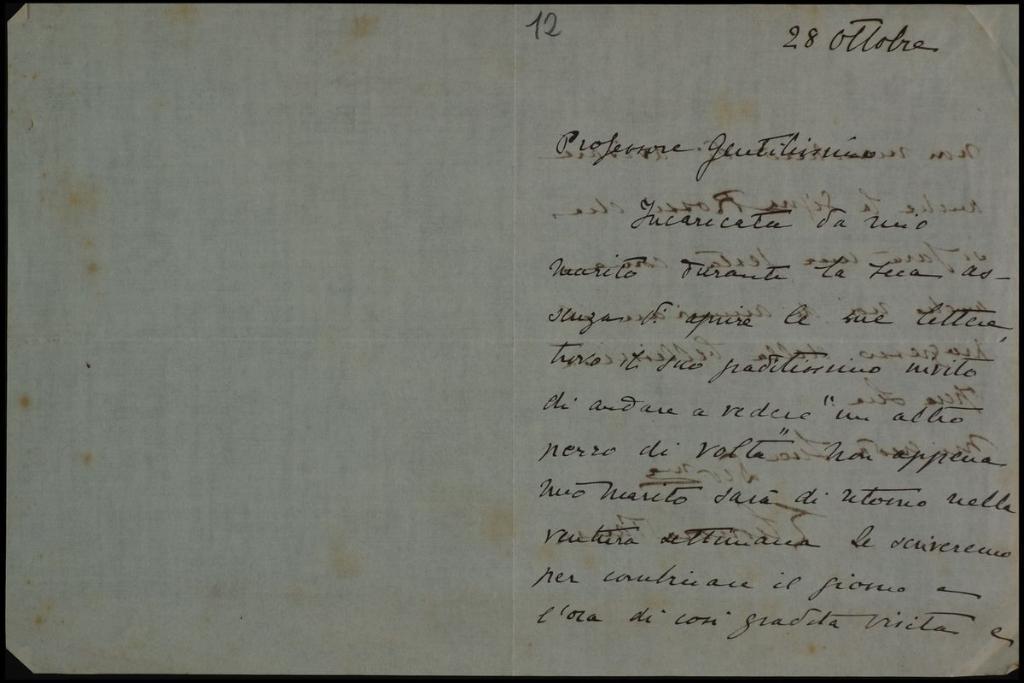 12
28 Ottobre
Professore Gentilissimo
Incaricata da mio
marito durante la sua as-
senza di aprire le sue lettere,
trovo il suo graditissimo invito
di andare a vedere "un altro
pezzo di volta" Non appena
mio marito sarà di ritorno nella
ventura settimana le scriveremo
per combinare il giorno e
l'ora di così gradita visita e